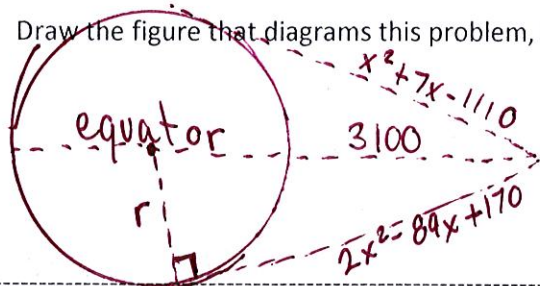 Draw the figure that diagrams this problem,
x²+7x-1110
equator
3100
r
2x²=89x+170